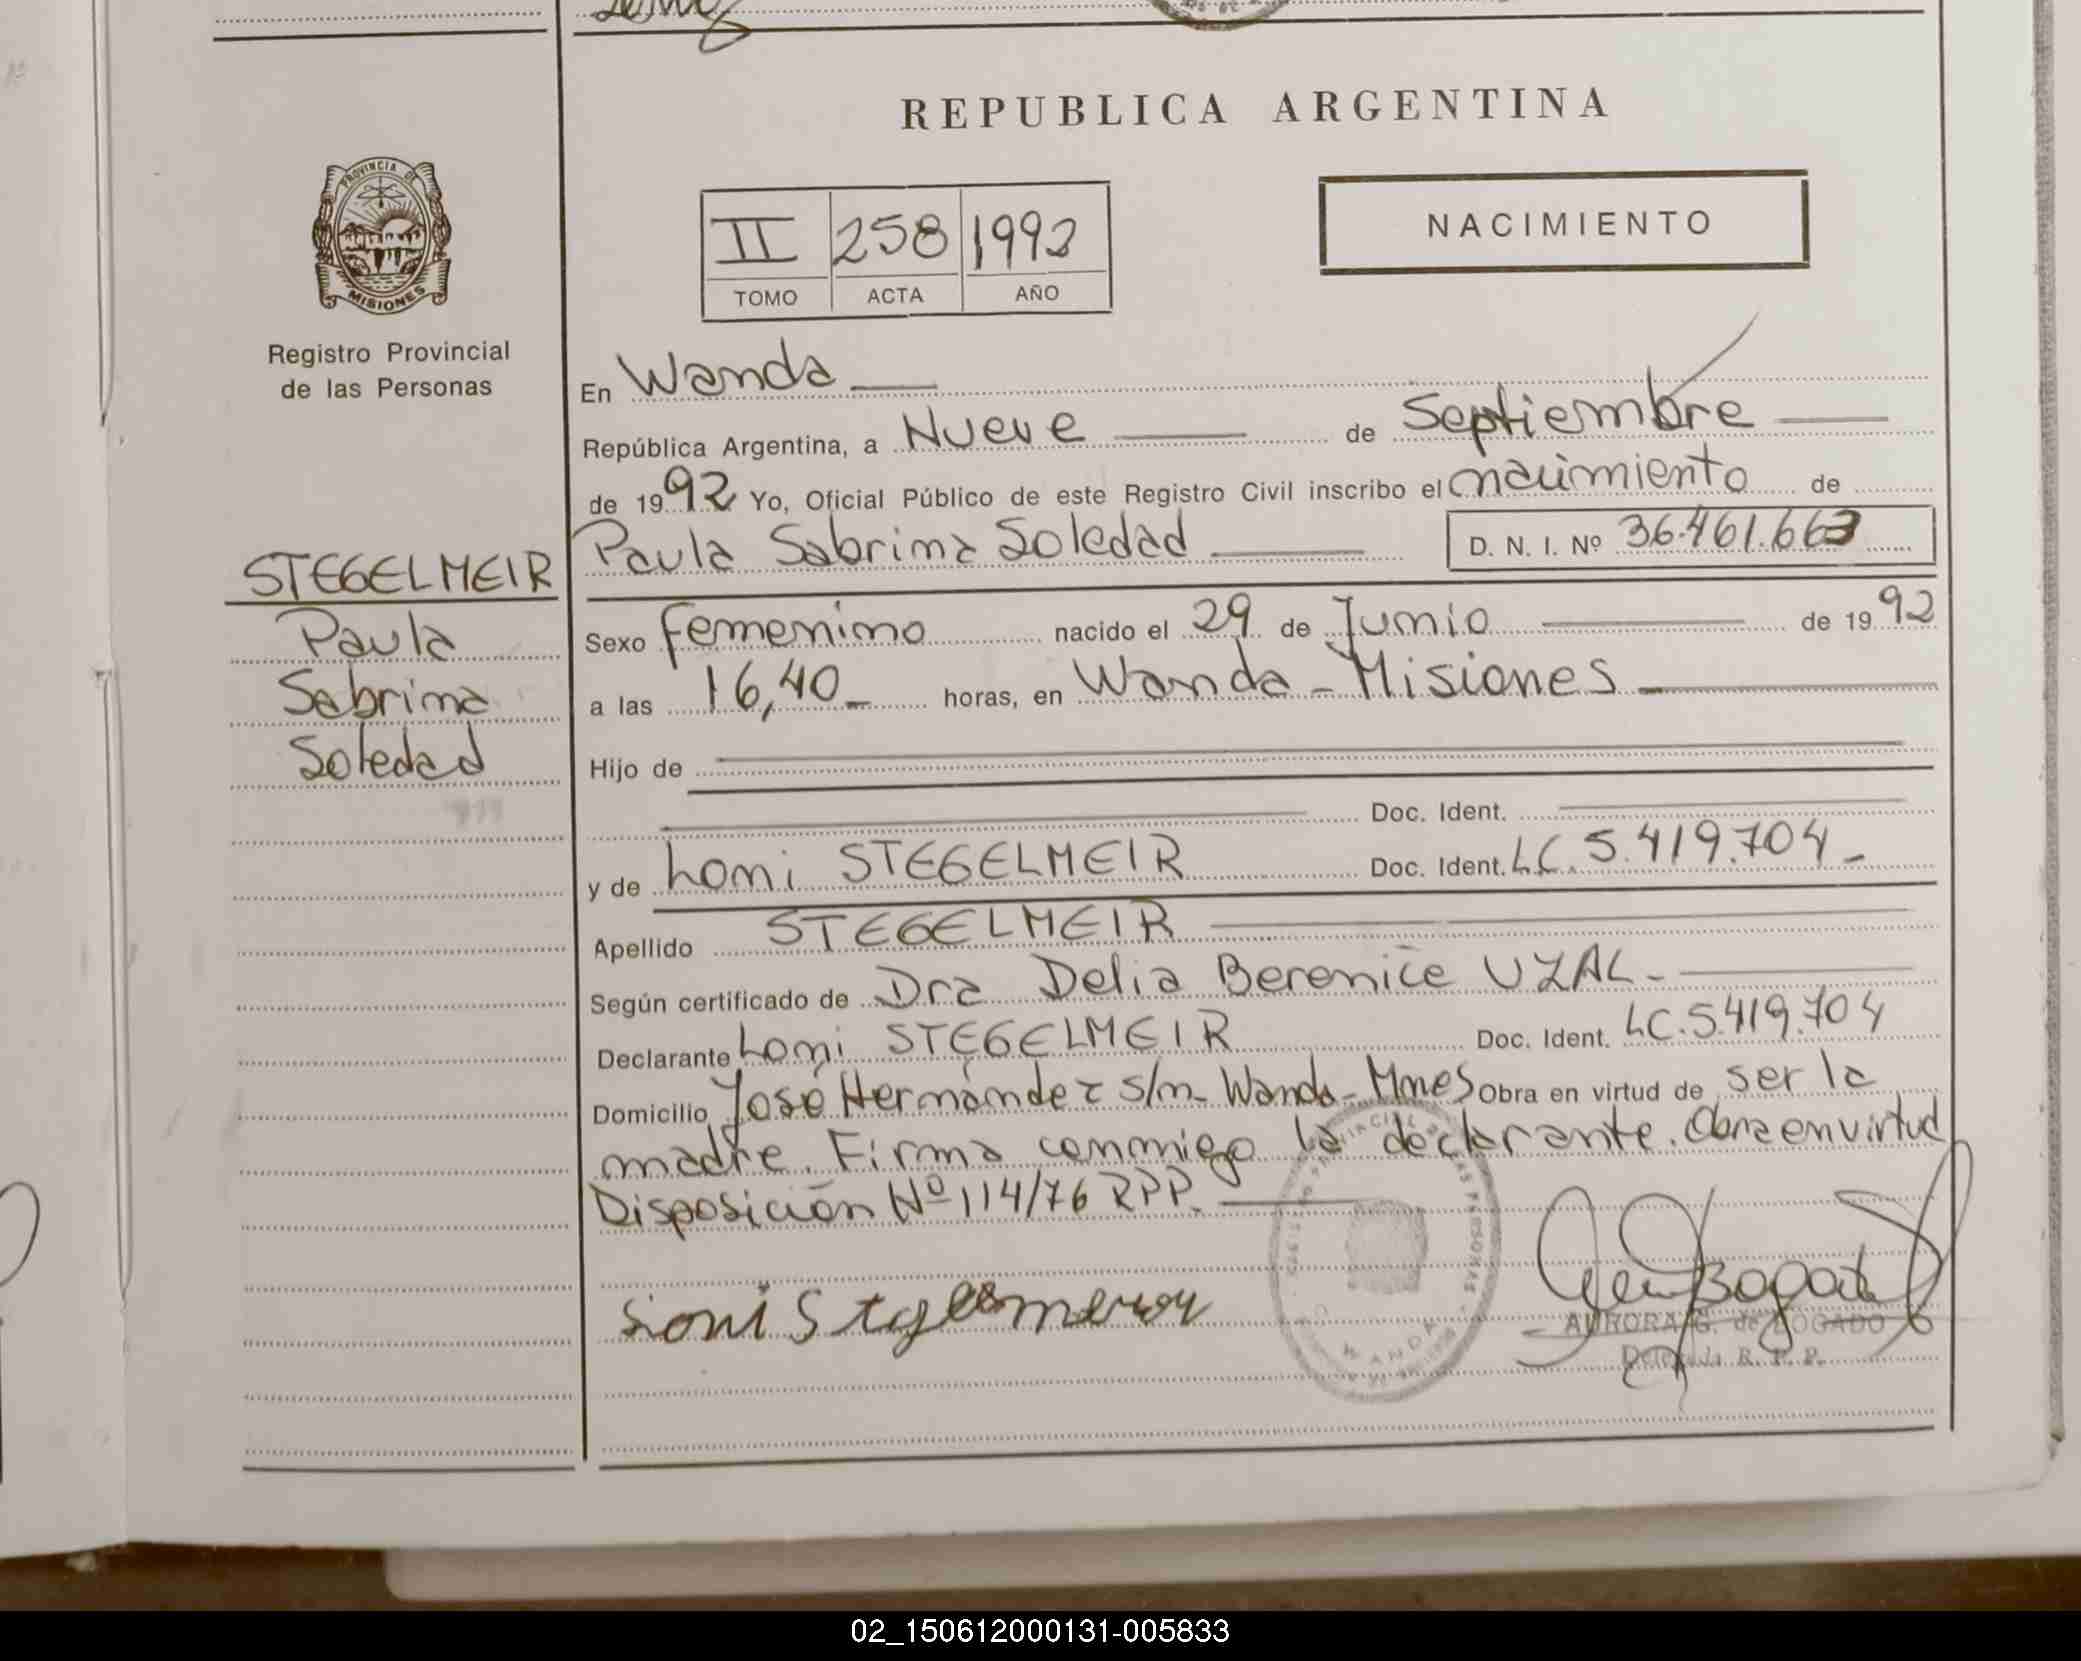 REPUBLICA ARGENTINA
PROVINCIA DE
MISIONES
Registro Provincial
de las Personas
NACIMIENTO
II 258 1992
TOMO ACTA AÑO
En Wanda
República Argentina, a Nueve de Septiembre
de 1992 Yo, Oficial Público de este Registro Civil inscribo el nacimiento de
Paula Sabrina Soledad D. N. I. Nº 36.461.663
STEGELMEIR
Paula
Sabrina
Soledad
Sexo femenino nacido el 29 de Junio de 1992
a las 16,40 horas, en Wanda - Misiones
Hijo de
Doc. Ident.
y de Loni STEGELMEIR Doc. Ident. LC. 5.419.704
Apellido STEGELMEIR
Según certificado de Dra Delia Berenice UZAL
Declarante Loni STEGELMEIR Doc. Ident. LC. 5.419.704
Domicilio José Hernández s/n - Wanda - Mnes Obra en virtud de ser la
madre. Firma conmigo la declarante. Obra en virtud
Disposición Nº 114/76 RPP.
AURORA G. de BOGADO
Delegada R. P. P.
WANDA
02_150612000131-005833